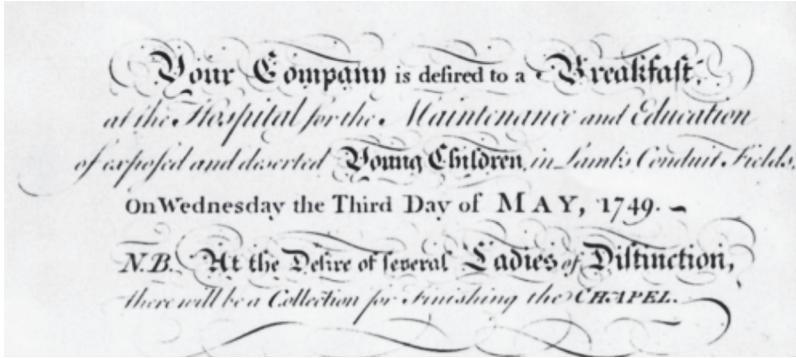 Your Company is desired to a Breakfast.
at the Hospital for the Maintenance and Education
of exposed and deserted Young Children in Lamb's Conduit Fields,
On Wednesday the Third Day of MAY, 1749.
N.B. At the Desire of several Ladies of Distinction,
there will be a Collection for Finishing the CHAPEL.